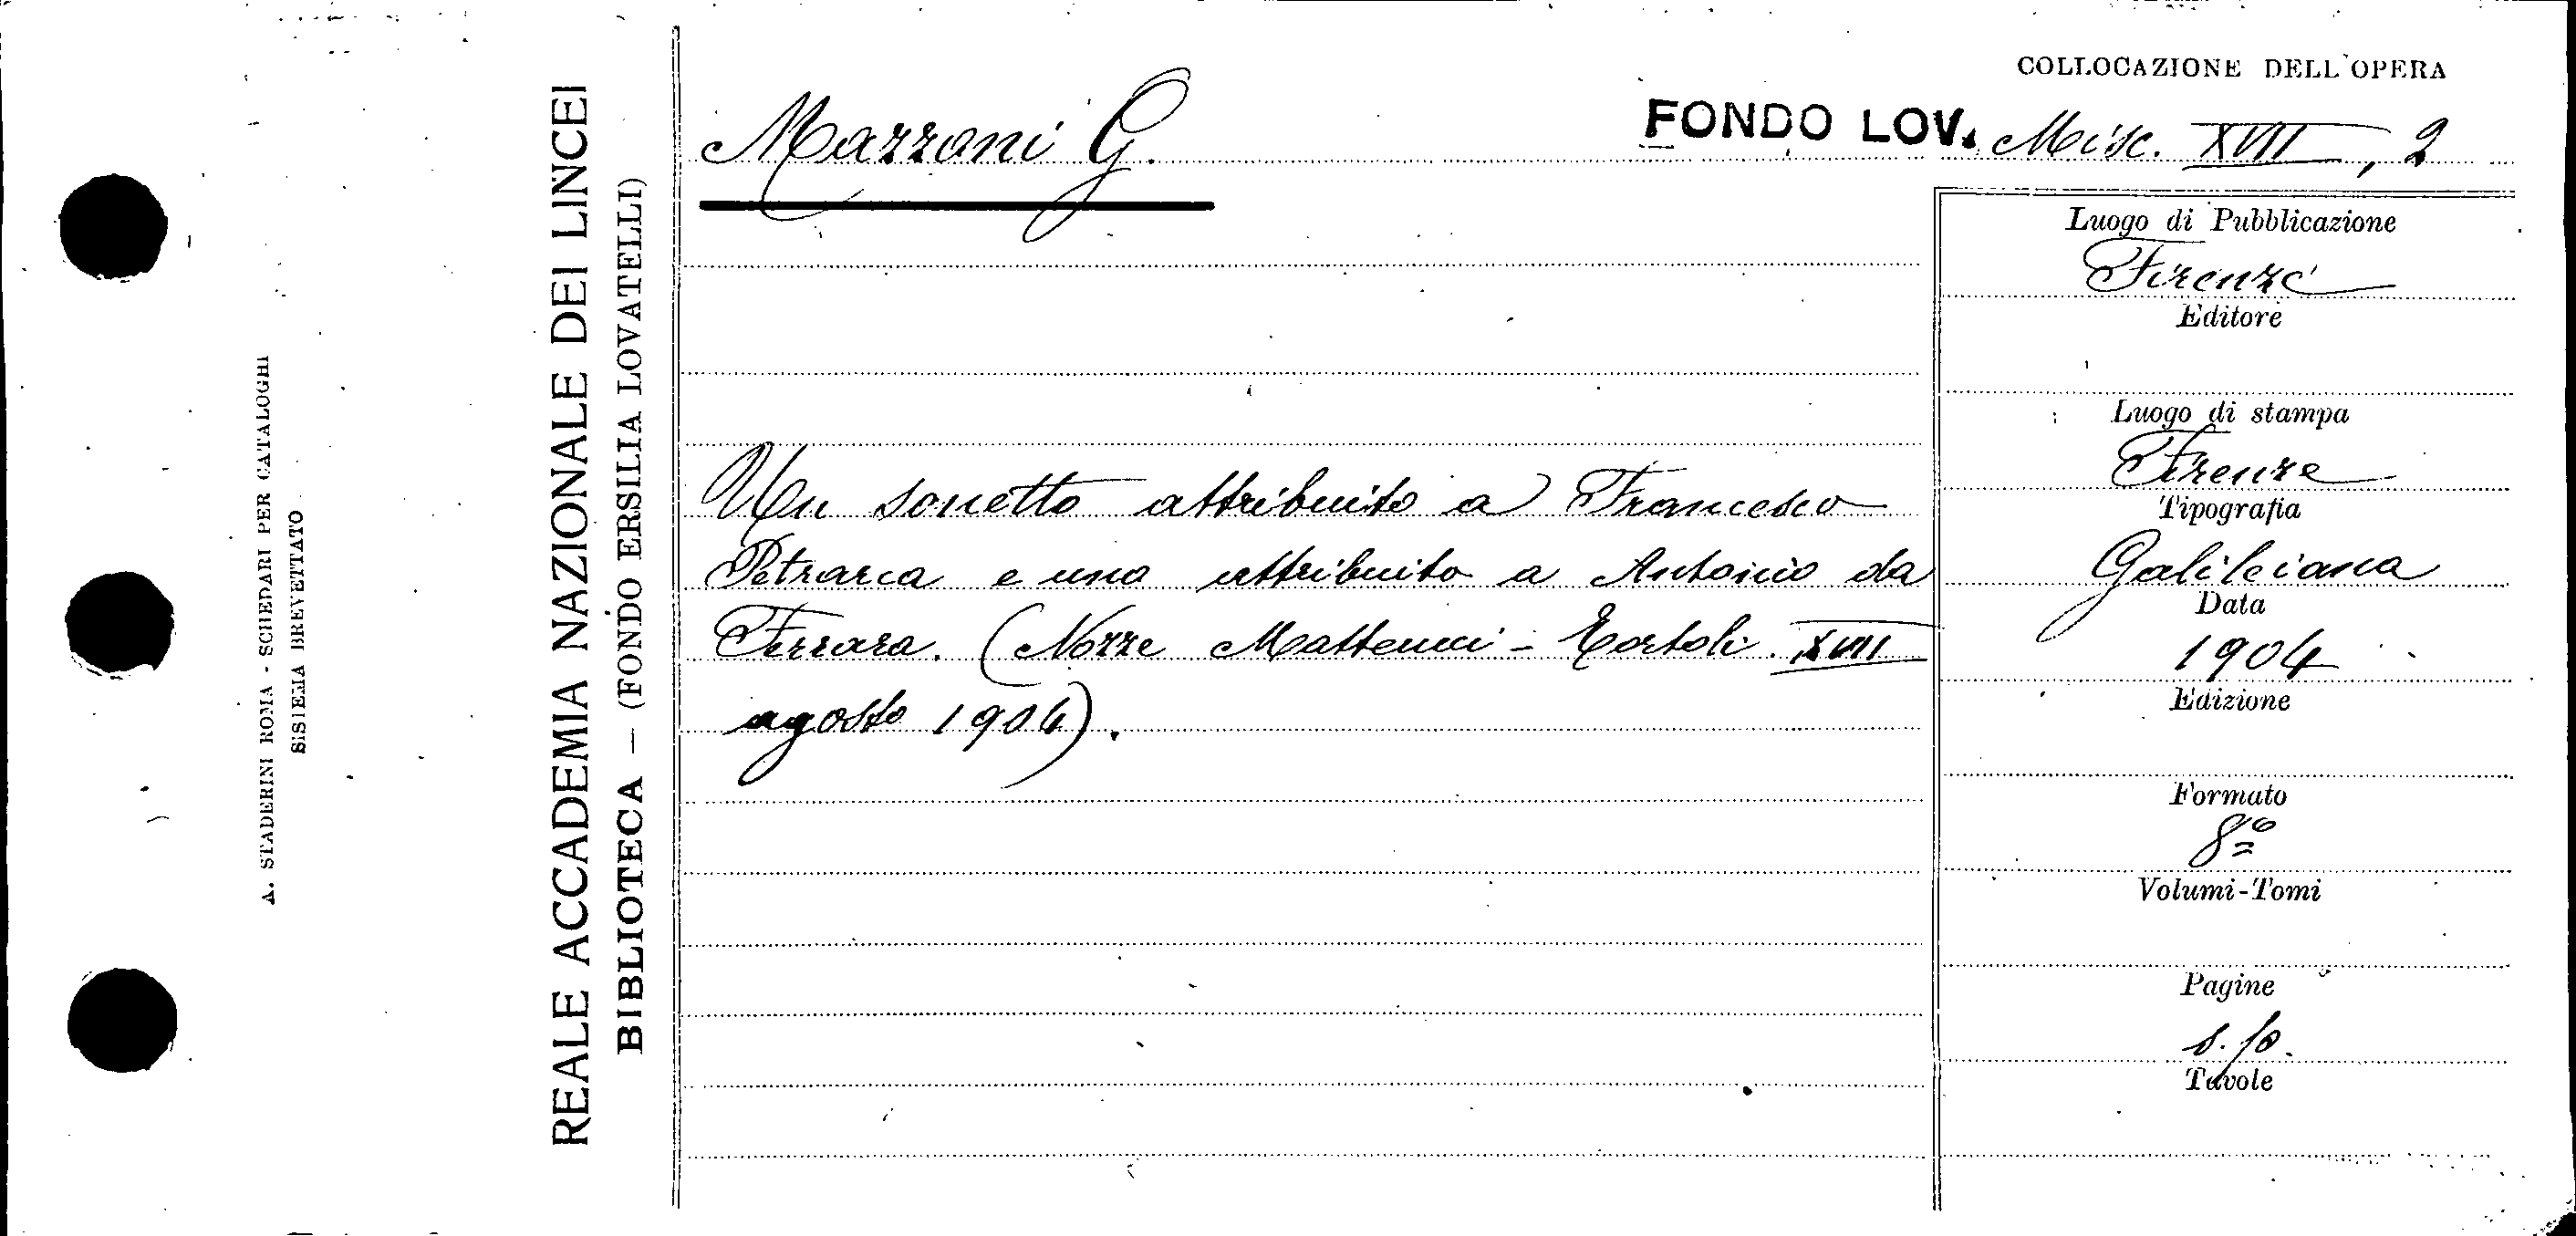 COLLOCAZIONE DELL'OPERA
Mazzoni G.
FONDO LOV. Misc. XVII, 2
Un sonetto attribuito a Francesco
Petrarca e uno attribuito a Antonio da
Ferrara. (Nozze Matteucci - XVII
agosto 1904).
Luogo di Pubblicazione
Firenze
Editore
Luogo di stampa
Firenze
Tipografia
Galileiana
Data
1904
Edizione
Formato
8º
Volumi-Tomi
Pagine
s. p.
Tavole
REALE ACCADEMIA NAZIONALE DEI LINCEI
BIBLIOTECA — (FONDO ERSILIA LOVATELLI)
A. STADERINI ROMA - SCHEDARI PER CATALOGHI
SISTEMA BREVETTATO